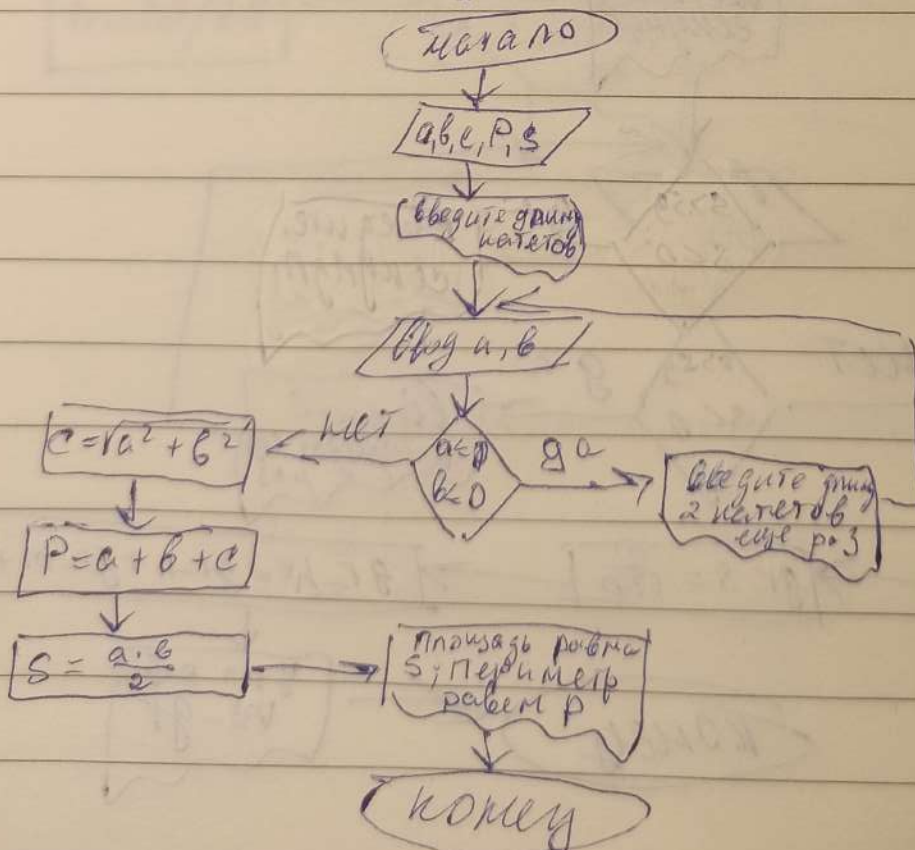 начало
a, b, c, P, S
введите длину
катетов
Ввод a, b
нет
a<0
b<0
да
c=√a²+b²
введите длину
2 катетов
еще раз
P=a+b+c
S=a·b/2
Площадь равна
S; Периметр
равен P
конец